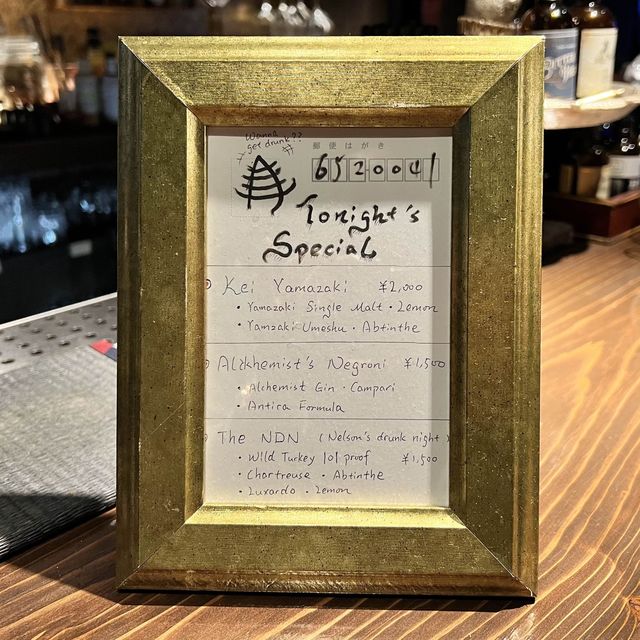 Wanna
get drunk??
郵便はがき
6520041
Tonight's
Special
Kei Yamazaki ¥2,000
• Yamazaki Single Malt • Lemon
• Yamzaki Umeshu • Abtinthe
Alckhemist's Negroni ¥1,500
• Alchemist Gin • Campari
• Antica Formula
The NDN (Nelson's drunk night)
• Wild Turkey 101 proof ¥1,500
• Chartreuse • Abtinthe
• Luxardo • Lemon